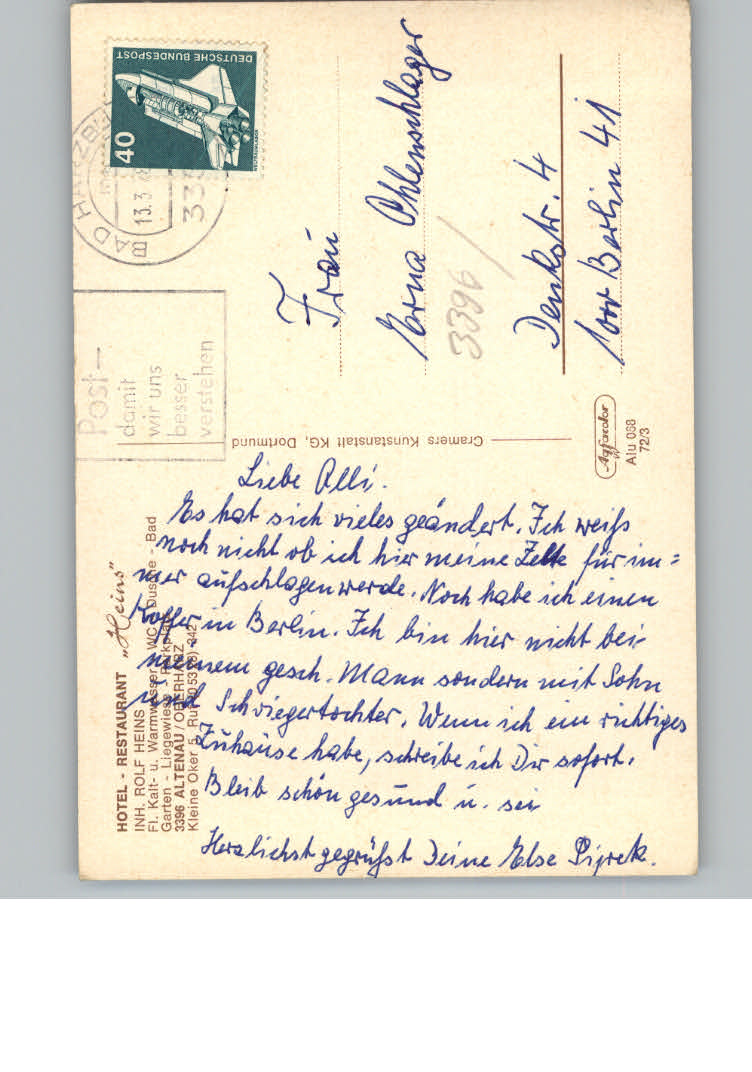 HOTEL - RESTAURANT „Heins"
INH. ROLF HEINS
Fl. Kalt- u. Warmwasser - WC - Dusche - Bad
Garten - Liegewiese - Parkplatz
3396 ALTENAU/OBERHARZ
Kleine Oker 5, Ruf (0 53 28) 342
Liebe Olli.
Es hat sich vieles geändert. Ich weiß
noch nicht ob ich hier meine Zelte für im=
mer aufschlagen werde. Noch habe ich einen
Koffer in Berlin. Ich bin hier nicht bei
meinem gesch. Mann sondern mit Sohn
und Schwiegertochter. Wenn ich ein richtiges
Zuhause habe, schreibe ich Dir sofort.
Bleib schön gesund u. sei
Herzlichst gegrüßt Deine Else
Cramers Kunstanstalt KG, Dortmund
Agfacolor
Alu 068
72/3
Post-
damit
wir uns
besser
verstehen
BAD HARZB
13.3
333
DEUTSCHE BUNDESPOST
40
Frau
Erna Ohlenschlager
3396/
Denkstr. 4
1000 Berlin 41